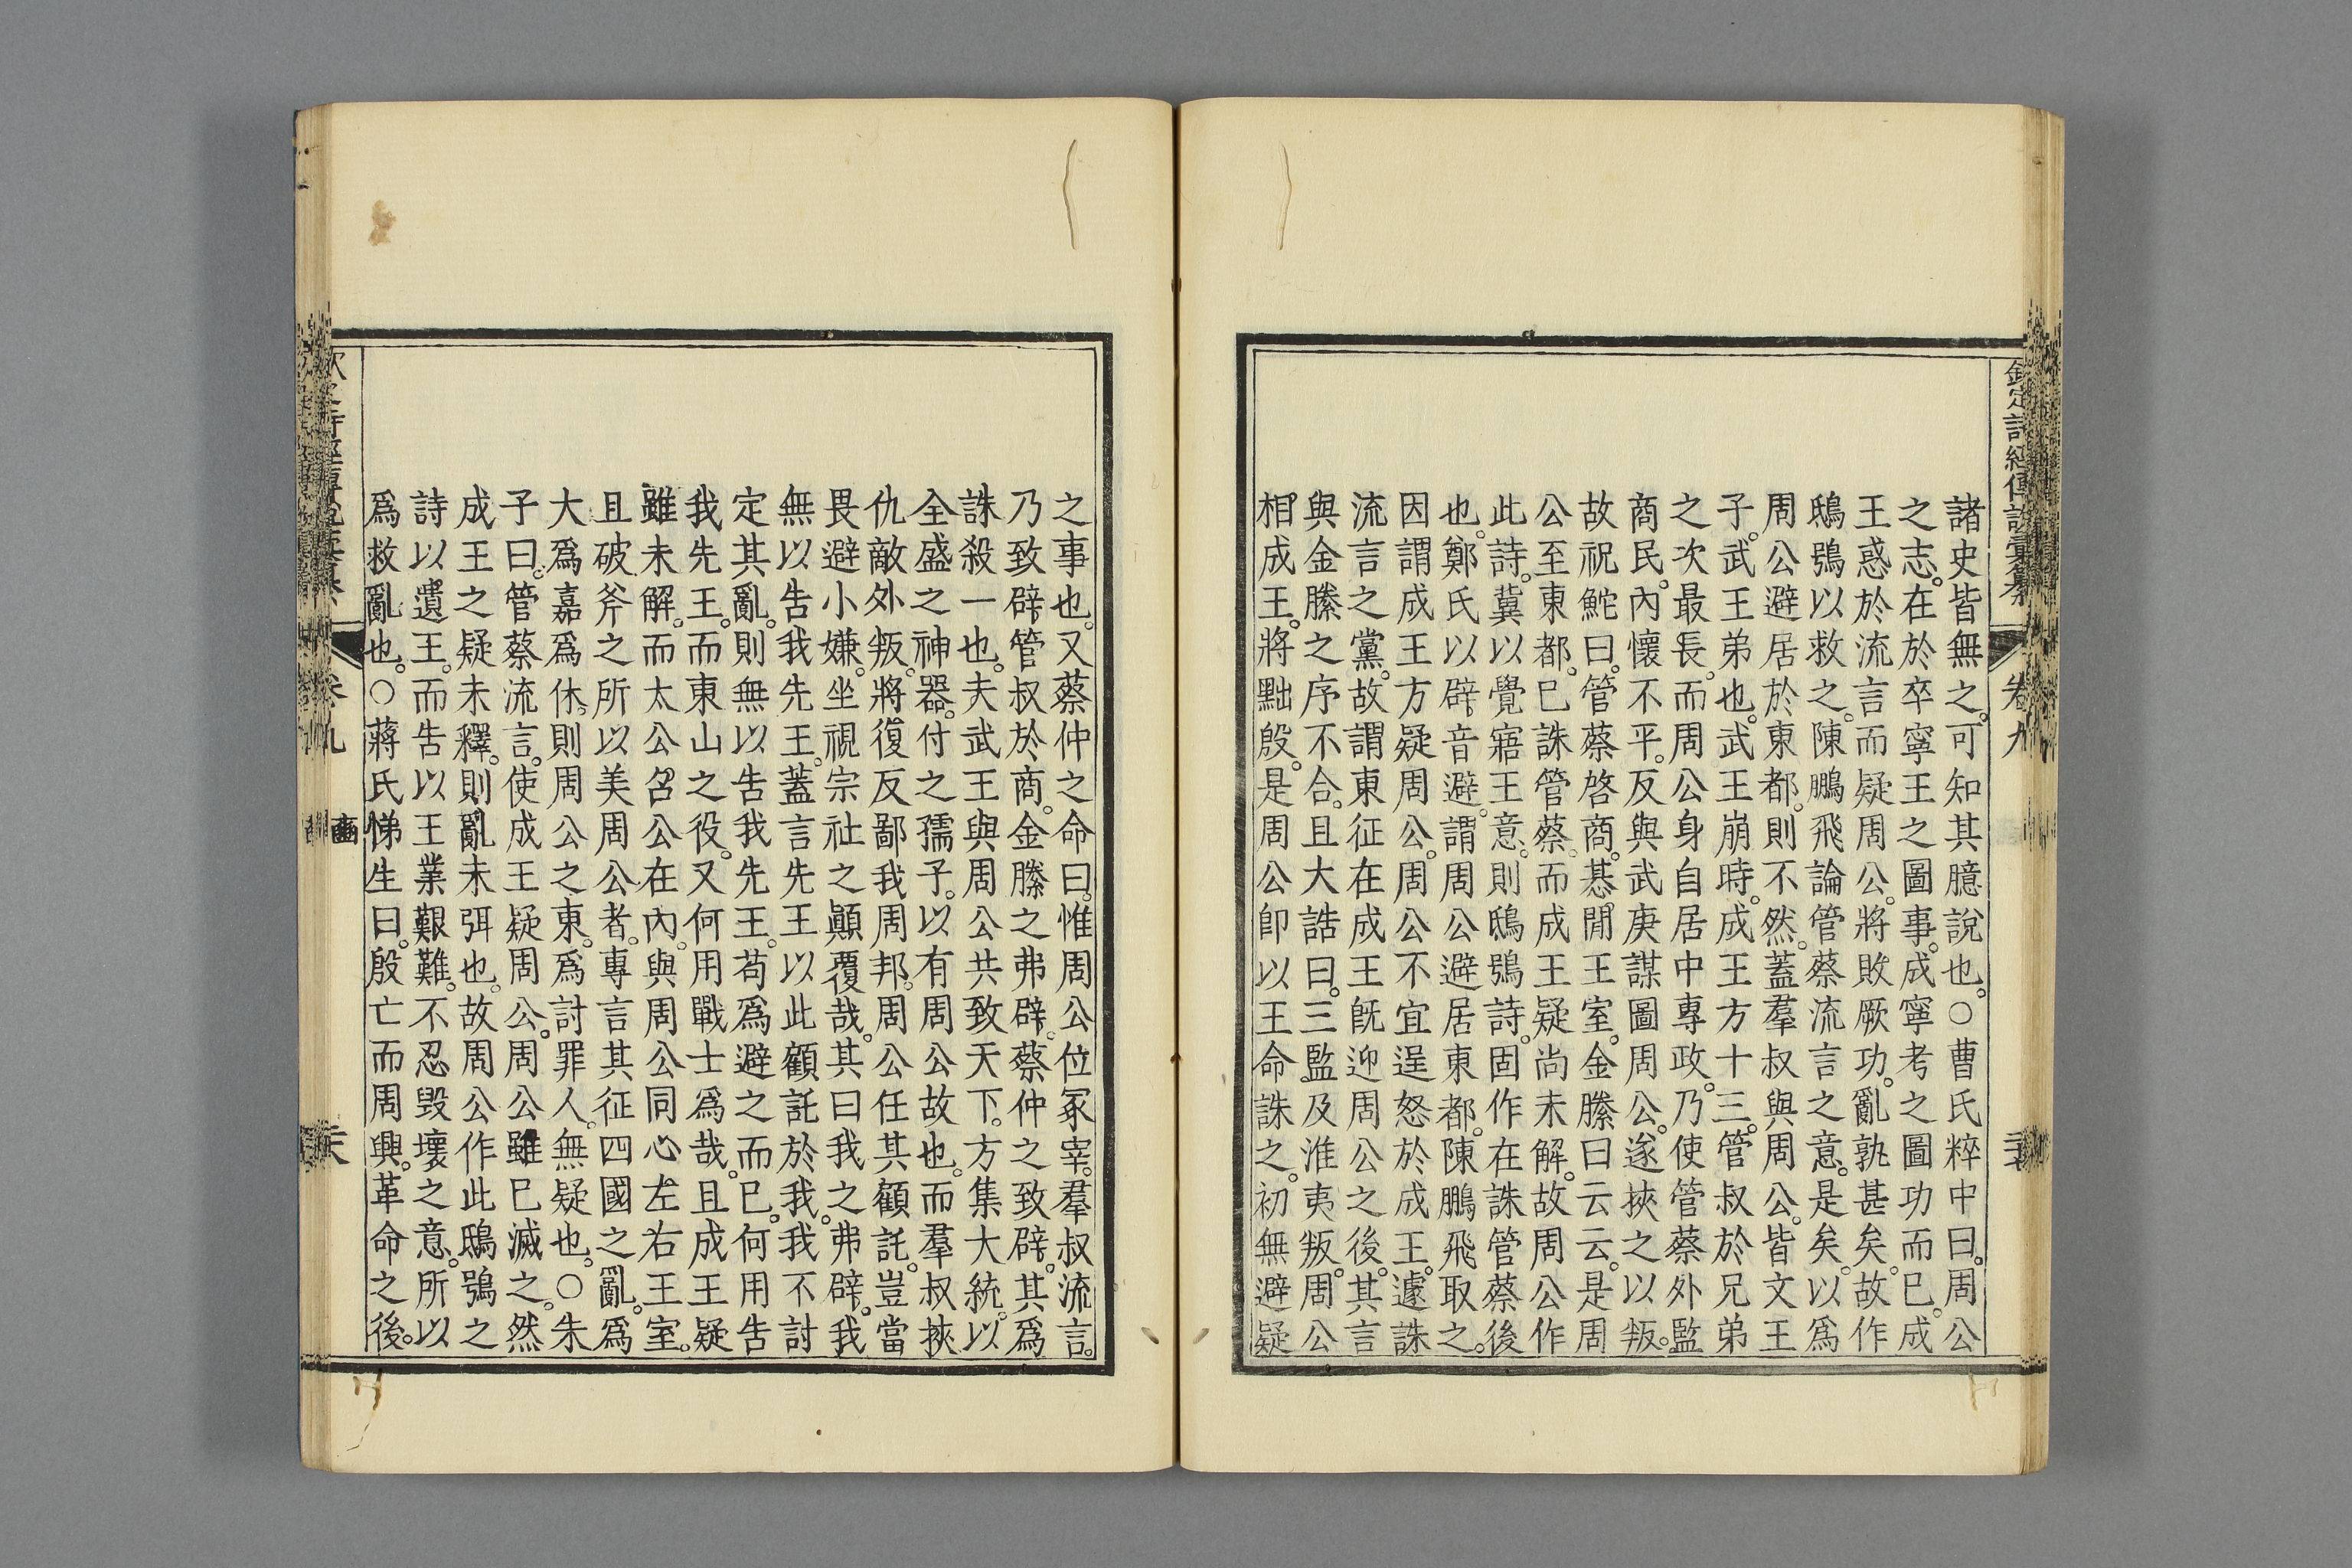 欽定詩經傳說彙纂 卷九
諸史皆無之。可知其臆說也。○曹氏粹中曰。周公
之志。在於卒寧王之圖事。成寧考之圖功而已。成
王惑於流言而疑周公。將敗厥功。亂孰甚矣。故作
鴟鴞以救之。陳鵬飛論管蔡流言之意。是矣。以爲
周公避居於東都。則不然。蓋羣叔與周公。皆文王
子。武王弟也。武王崩時。成王方十三。管叔於兄弟
之次最長。而周公身自居中專政。乃使管蔡外監
商民。內懷不平。反與武庚謀圖周公。遂挾之以叛。
故祝鮀曰。管蔡啓商。惎閒王室。金縢曰云云。是周
公至東都。已誅管蔡。而成王疑尚未解。故周公作
此詩。冀以覺寤王意。則鴟鴞詩。固作在誅管蔡後
也。鄭氏以辟音避。謂周公避居東都。陳鵬飛取之。
因謂成王方疑周公。周公不宜逞怒於成王。遽誅
流言之黨。故謂東征在成王旣迎周公之後。其言
與金縢之序不合。且大誥曰。三監及淮夷叛。周公
相成王。將黜殷。是周公卽以王命誅之。初無避疑
之事也。又蔡仲之命曰。惟周公位冢宰。羣叔流言。
乃致辟管叔於商。金縢之弗辟。蔡仲之致辟。其爲
誅殺一也。夫武王與周公共致天下。方集大統。以
全盛之神器。付之孺子。以有周公故也。而羣叔挾
仇敵外叛。將復反鄙我周邦。周公任其顧託。豈當
畏避小嫌。坐視宗社之顚覆哉。其曰我之弗辟。我
無以告我先王。蓋言先王以此顧託於我。我不討
定其亂。則無以告我先王。苟爲避之而已。何用告
我先王。而東山之役。又何用戰士爲哉。且成王疑
雖未解。而太公召公在內。與周公同心左右王室。
且破斧之所以美周公者。專言其征四國之亂。爲
大爲嘉爲休。則周公之東。爲討罪人。無疑也。○朱
子曰。管蔡流言。使成王疑周公。周公雖已滅之。然
成王之疑未釋。則亂未弭也。故周公作此鴟鴞之
詩以遺王。而告以王業艱難。不忍毀壞之意。所以
爲救亂也。○蔣氏悌生曰。殷亡而周興。革命之後。
卷九 豳